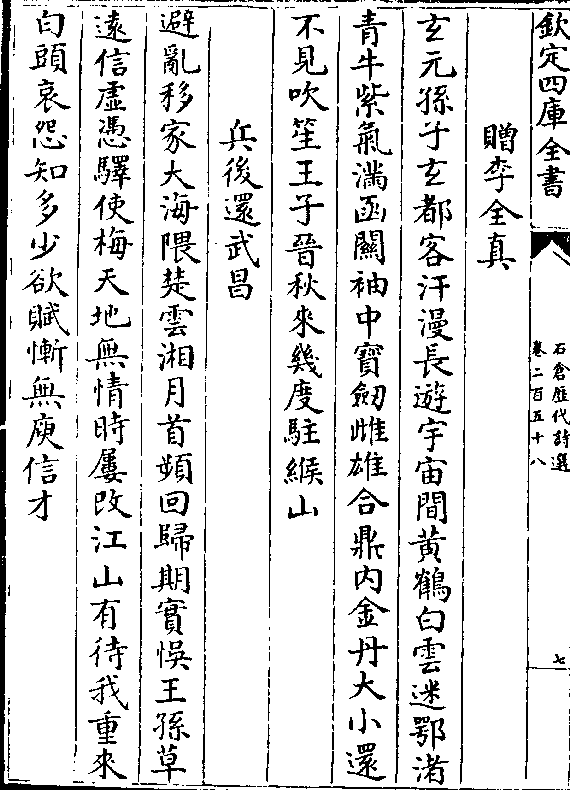 欽定四庫全書
石倉歷代詩選
卷二百五十八
七
贈李全真
玄元孫子玄都客汗漫長遊宇宙間黃鶴白雲迷鄂渚
青牛紫氣滿函關袖中寶劒雌雄合鼎内金丹大小還
不見吹笙王子晉秋來幾度駐緱山
兵後還武昌
避亂移家大海隈楚雲湘月首頻回歸期實悞王孫草
遠信虛憑驛使梅天地無情時屢改江山有待我重來
白頭哀怨知多少欲賦慚無庾信才